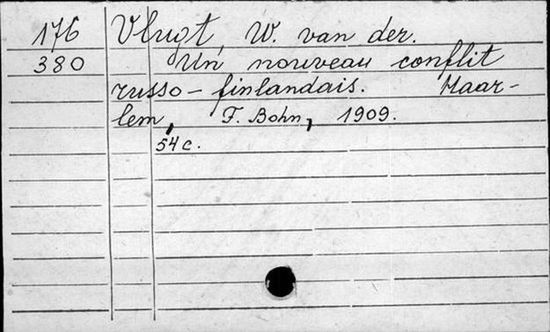 176 Vlugt, W. van der.
380 Un nouveau conflit
russo-finlandais. Haar-
lem, F. Bohn, 1909.
54 c.